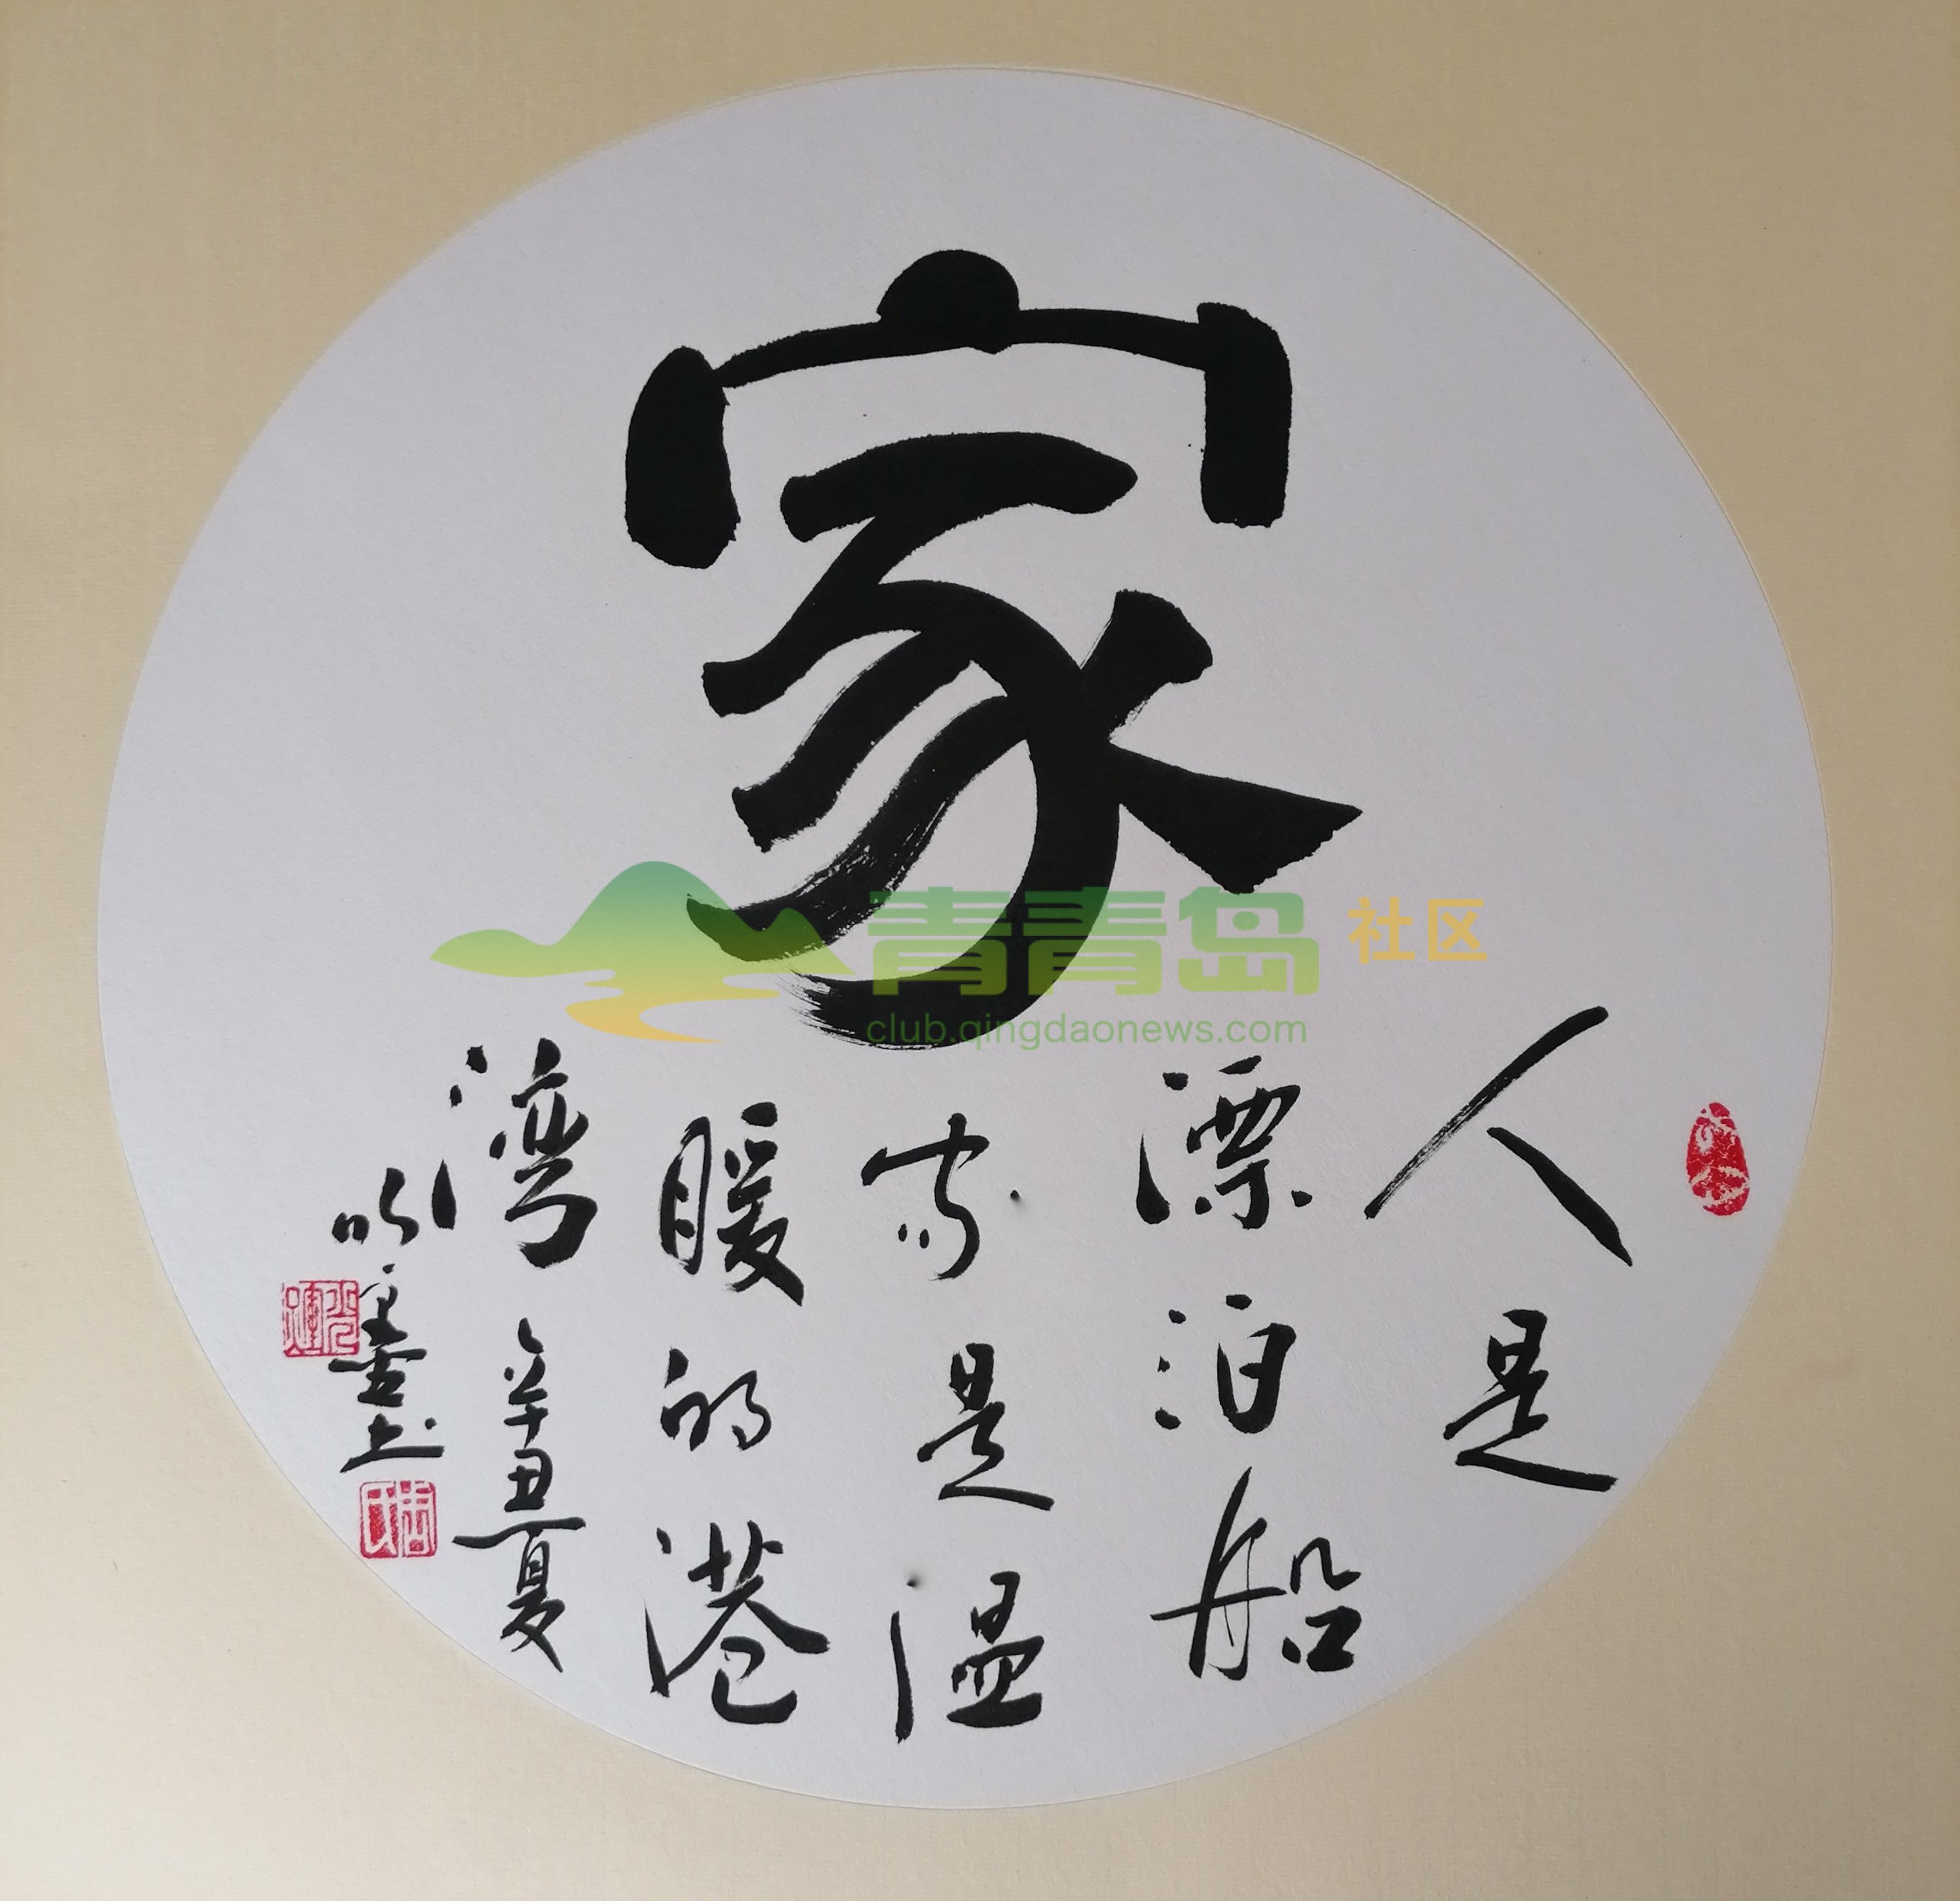 家
人是
漂泊船
家是温
暖的港
湾 辛丑夏
青青岛 社区
club.qingdaonews.com